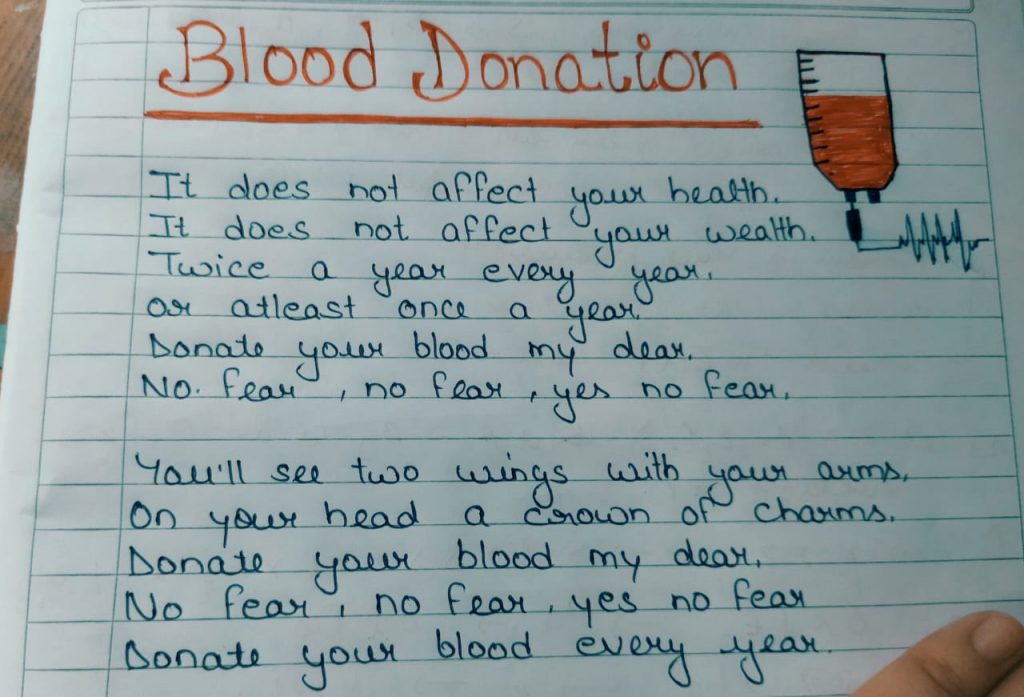 Blood Donation
It does not affect your health.
It does not affect your wealth.
Twice a year every year.
or atleast once a year.
Donate your blood my dear.
No. fear, no fear, yes no fear.
You'll see two wings with your arms,
On your head a crown of charms.
Donate your blood my dear,
No fear, no fear, yes no fear
Donate your blood every year.